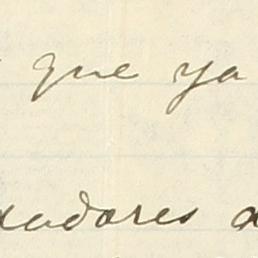 que ya
xadores a